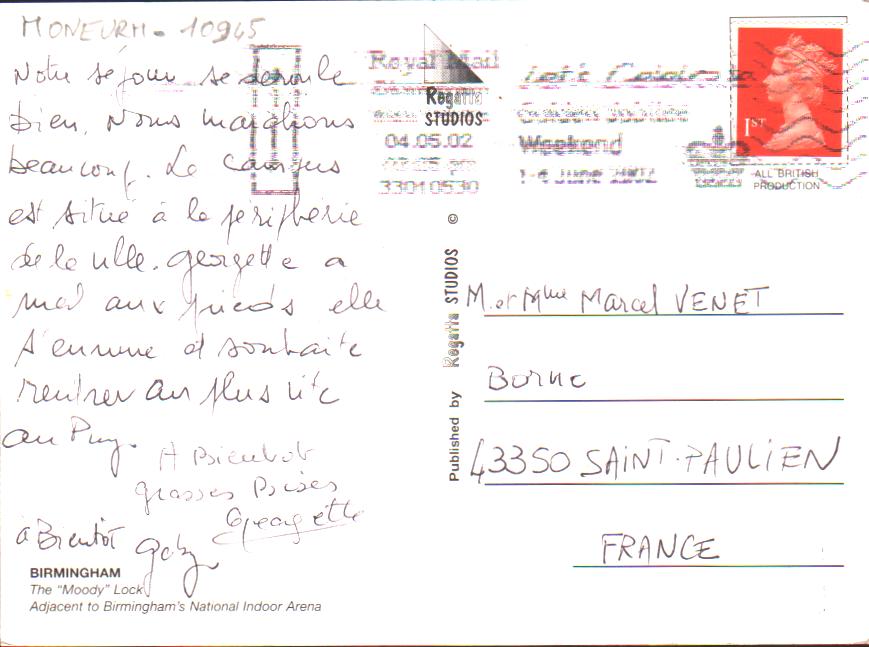 MONEURH - 10945
Notre séjour se deroule
bien. Nous marchons
beaucoup. Le campus
est situé à la périphérie
de la ville. Georgette a
mal aux pieds elle
s'ennuie et souhaite
rentrer au plus vite
au Puy.
A Bientot
grosses Bises
Georgette
à Bientôt
Gaby
BIRMINGHAM
The "Moody" Lock
Adjacent to Birmingham's National Indoor Arena
Royal Mail
04.05.02
33010530
Weekend
1-4 June 2002
Regatta
STUDIOS
1ST
ALL BRITISH
PRODUCTION
Published by Regatta STUDIOS ©
M. et Mme Marcel VENET
Borne
43350 SAINT-PAULIEN
FRANCE